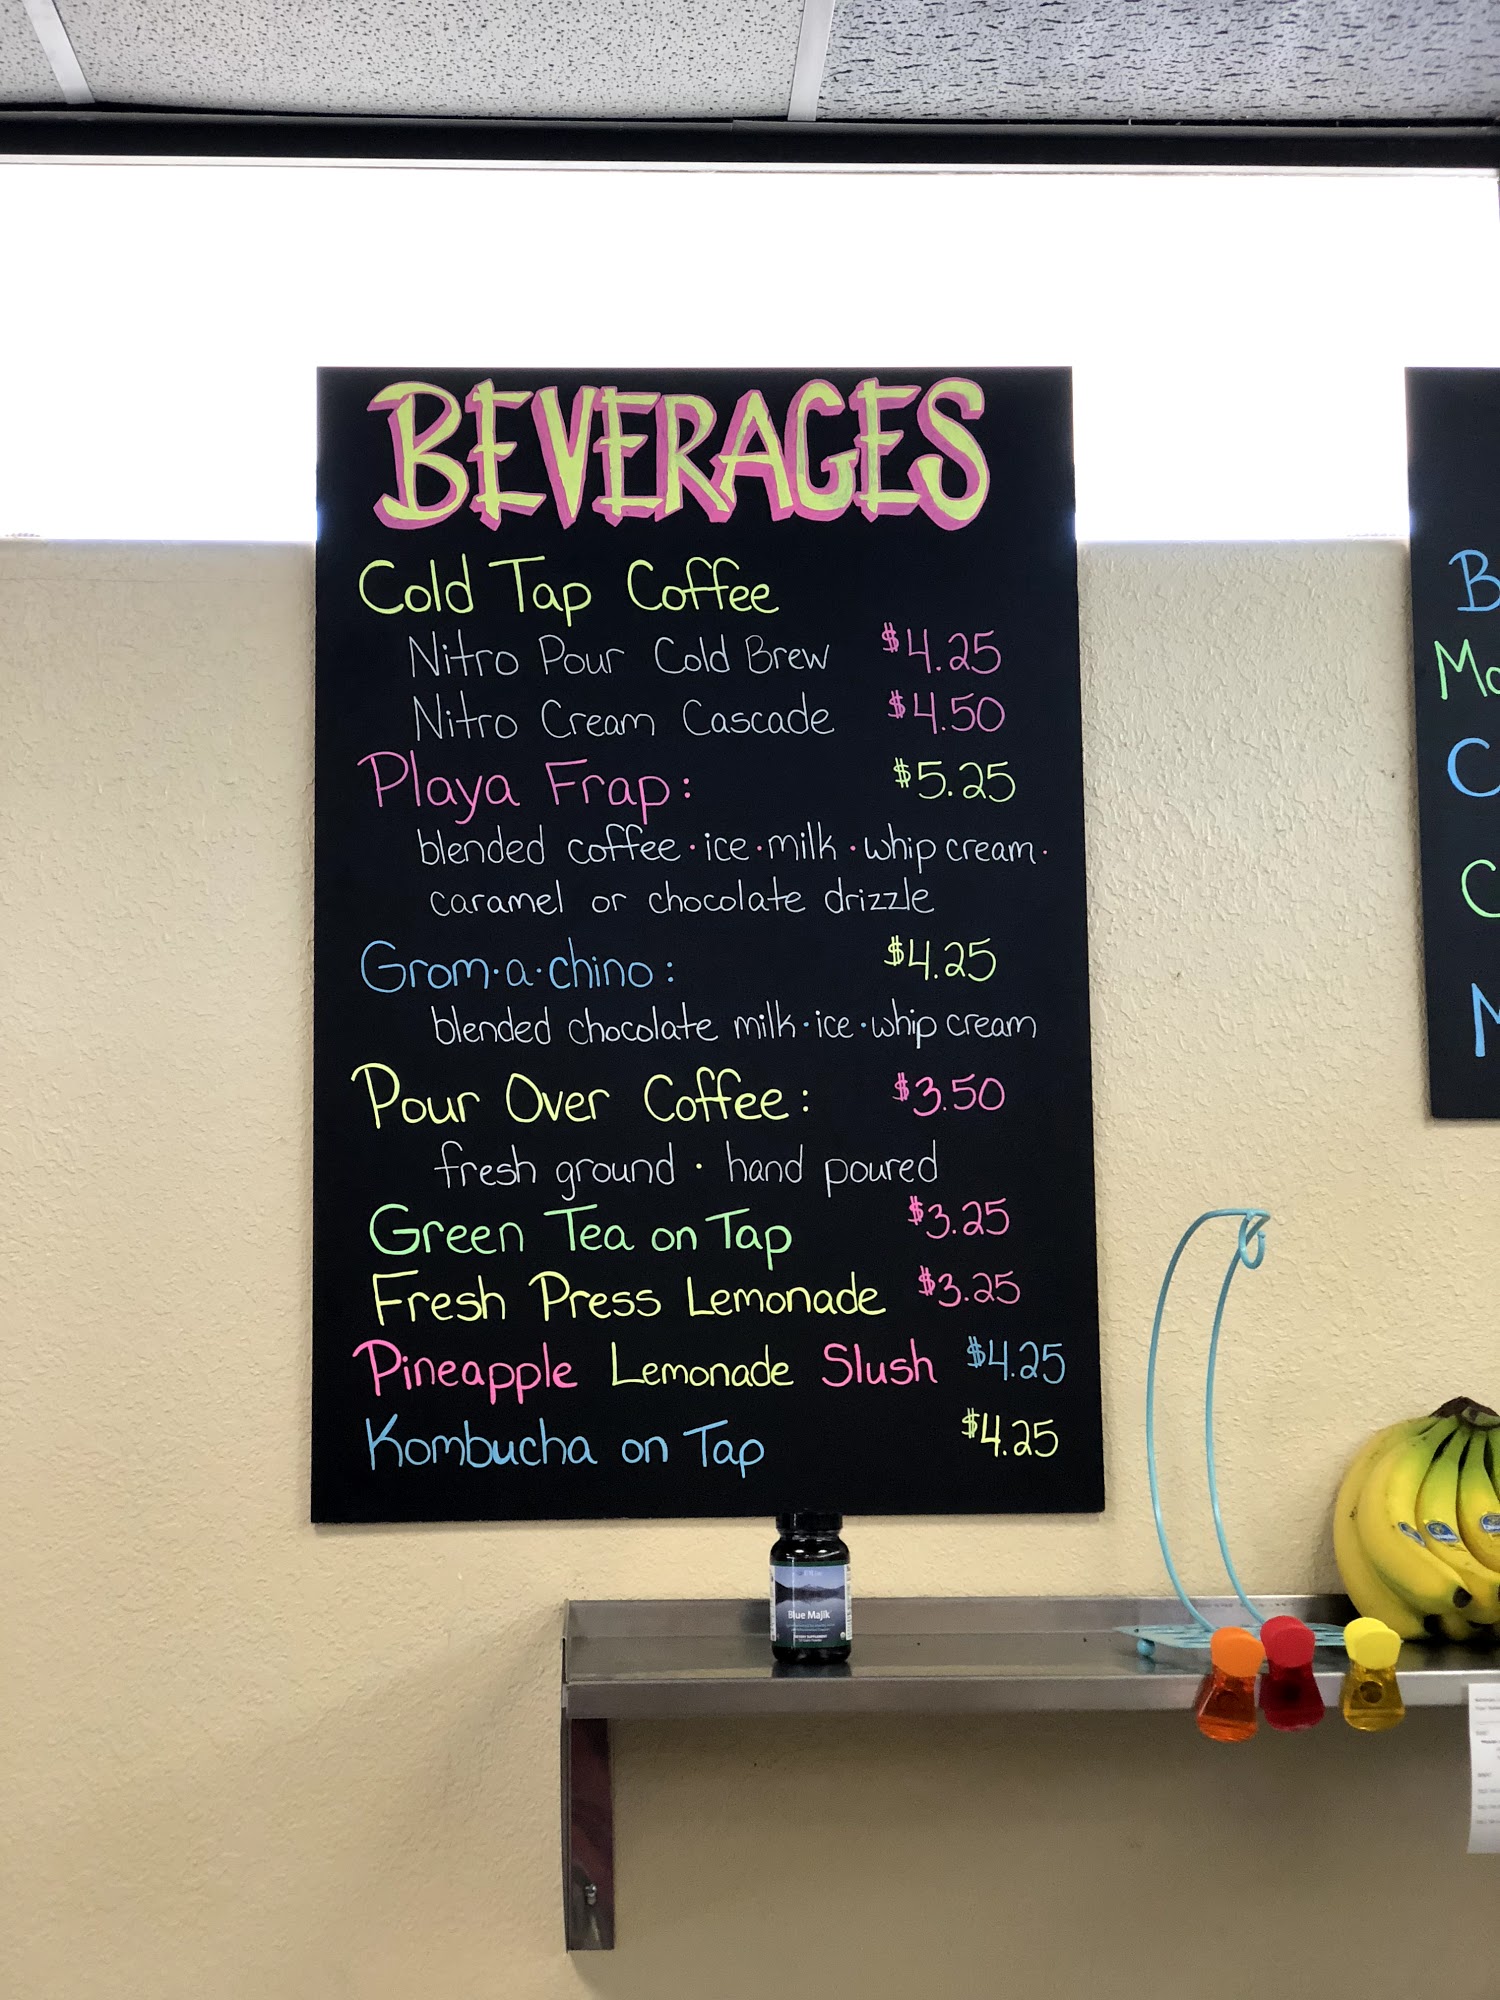 BEVERAGES
Cold Tap Coffee
Nitro Pour Cold Brew $4.25
Nitro Cream Cascade $4.50
Playa Frap: $5.25
blended coffee · ice · milk · whip cream ·
caramel or chocolate drizzle
Grom·a·chino: $4.25
blended chocolate milk · ice · whip cream
Pour Over Coffee: $3.50
fresh ground · hand poured
Green Tea on Tap $3.25
Fresh Press Lemonade $3.25
Pineapple Lemonade Slush $4.25
Kombucha on Tap $4.25
Blue Majik
B
Mo
C
C